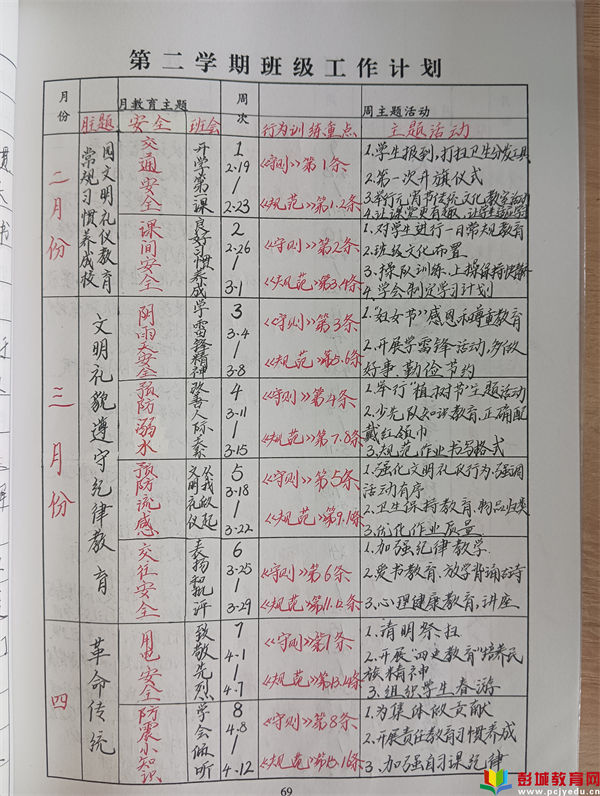 第二学期班级工作计划
月份
月教育主题
周次
周主题活动
主题 安全 班会
行为训练重点
主题活动
二月份
校园文明礼仪教育
常规习惯养成
交通安全
开学第一课
1
2.19
2.23
《守则》第1条
《规范》第1.2条
1.学生报到,打扫卫生分发工具
2.第一次升旗仪式
3.举行元宵节传统文化教室活动
4.让课堂更有趣,让
课间安全
良好习惯养成
2
2.26
3.1
《守则》第2条
《规范》第3.4条
1.对学生进行一日常规教育
2.班级文化布置
3.操队训练,上操保持快静
4.学会制定学习计划
三月份
文明礼貌遵守纪律教育
阴雨天安全
学雷锋精神
3
3.4
3.8
《守则》第3条
《规范》第5.6条
1.“妇女节”感恩和尊重教育
2.开展学雷锋活动,多做
好事,勤俭节约
预防溺水
改善人际关系
4
3.11
3.15
《守则》第4条
《规范》第7.8条
1.举行“植树节”主题活动
2.少先队知识教育,正确配
戴红领巾
3.规范作业书写格式
预防流感
文明礼仪
从我做起
5
3.18
3.22
《守则》第5条
《规范》第9.1条
1.强化文明礼仪行为,强调
活动有序
2.卫生保持教育,物品归类
3.优化作业质量
交往安全
表扬和批评
6
3.25
3.29
《守则》第6条
《规范》第11.12条
1.加强纪律教学
2.爱书教育,放学背诵古诗
3.心理健康教育,讲座
四
革命传统
用电安全
致敬先烈
7
4.1
4.7
《守则》第7条
《规范》第13.14条
1.清明祭扫
2.开展“四史教育”培养民
族精神
3.组织学生春游
防震小知识
学会倾听
8
4.8
4.12
《守则》第8条
《规范》第15.16条
1.为集体做贡献
2.开展责任教育习惯养成
3.加强自习课纪律
69
彭城教育网
www.pcjyedu.cn